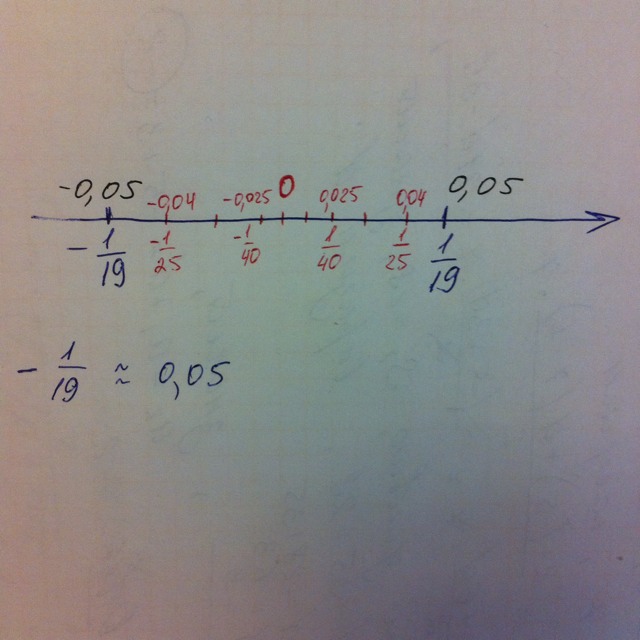 -0,05 -0,04 -0,025 0 0,025 0,04 0,05
-1/19 -1/25 -1/40 1/40 1/25 1/19
- 1/19 ≈ 0,05